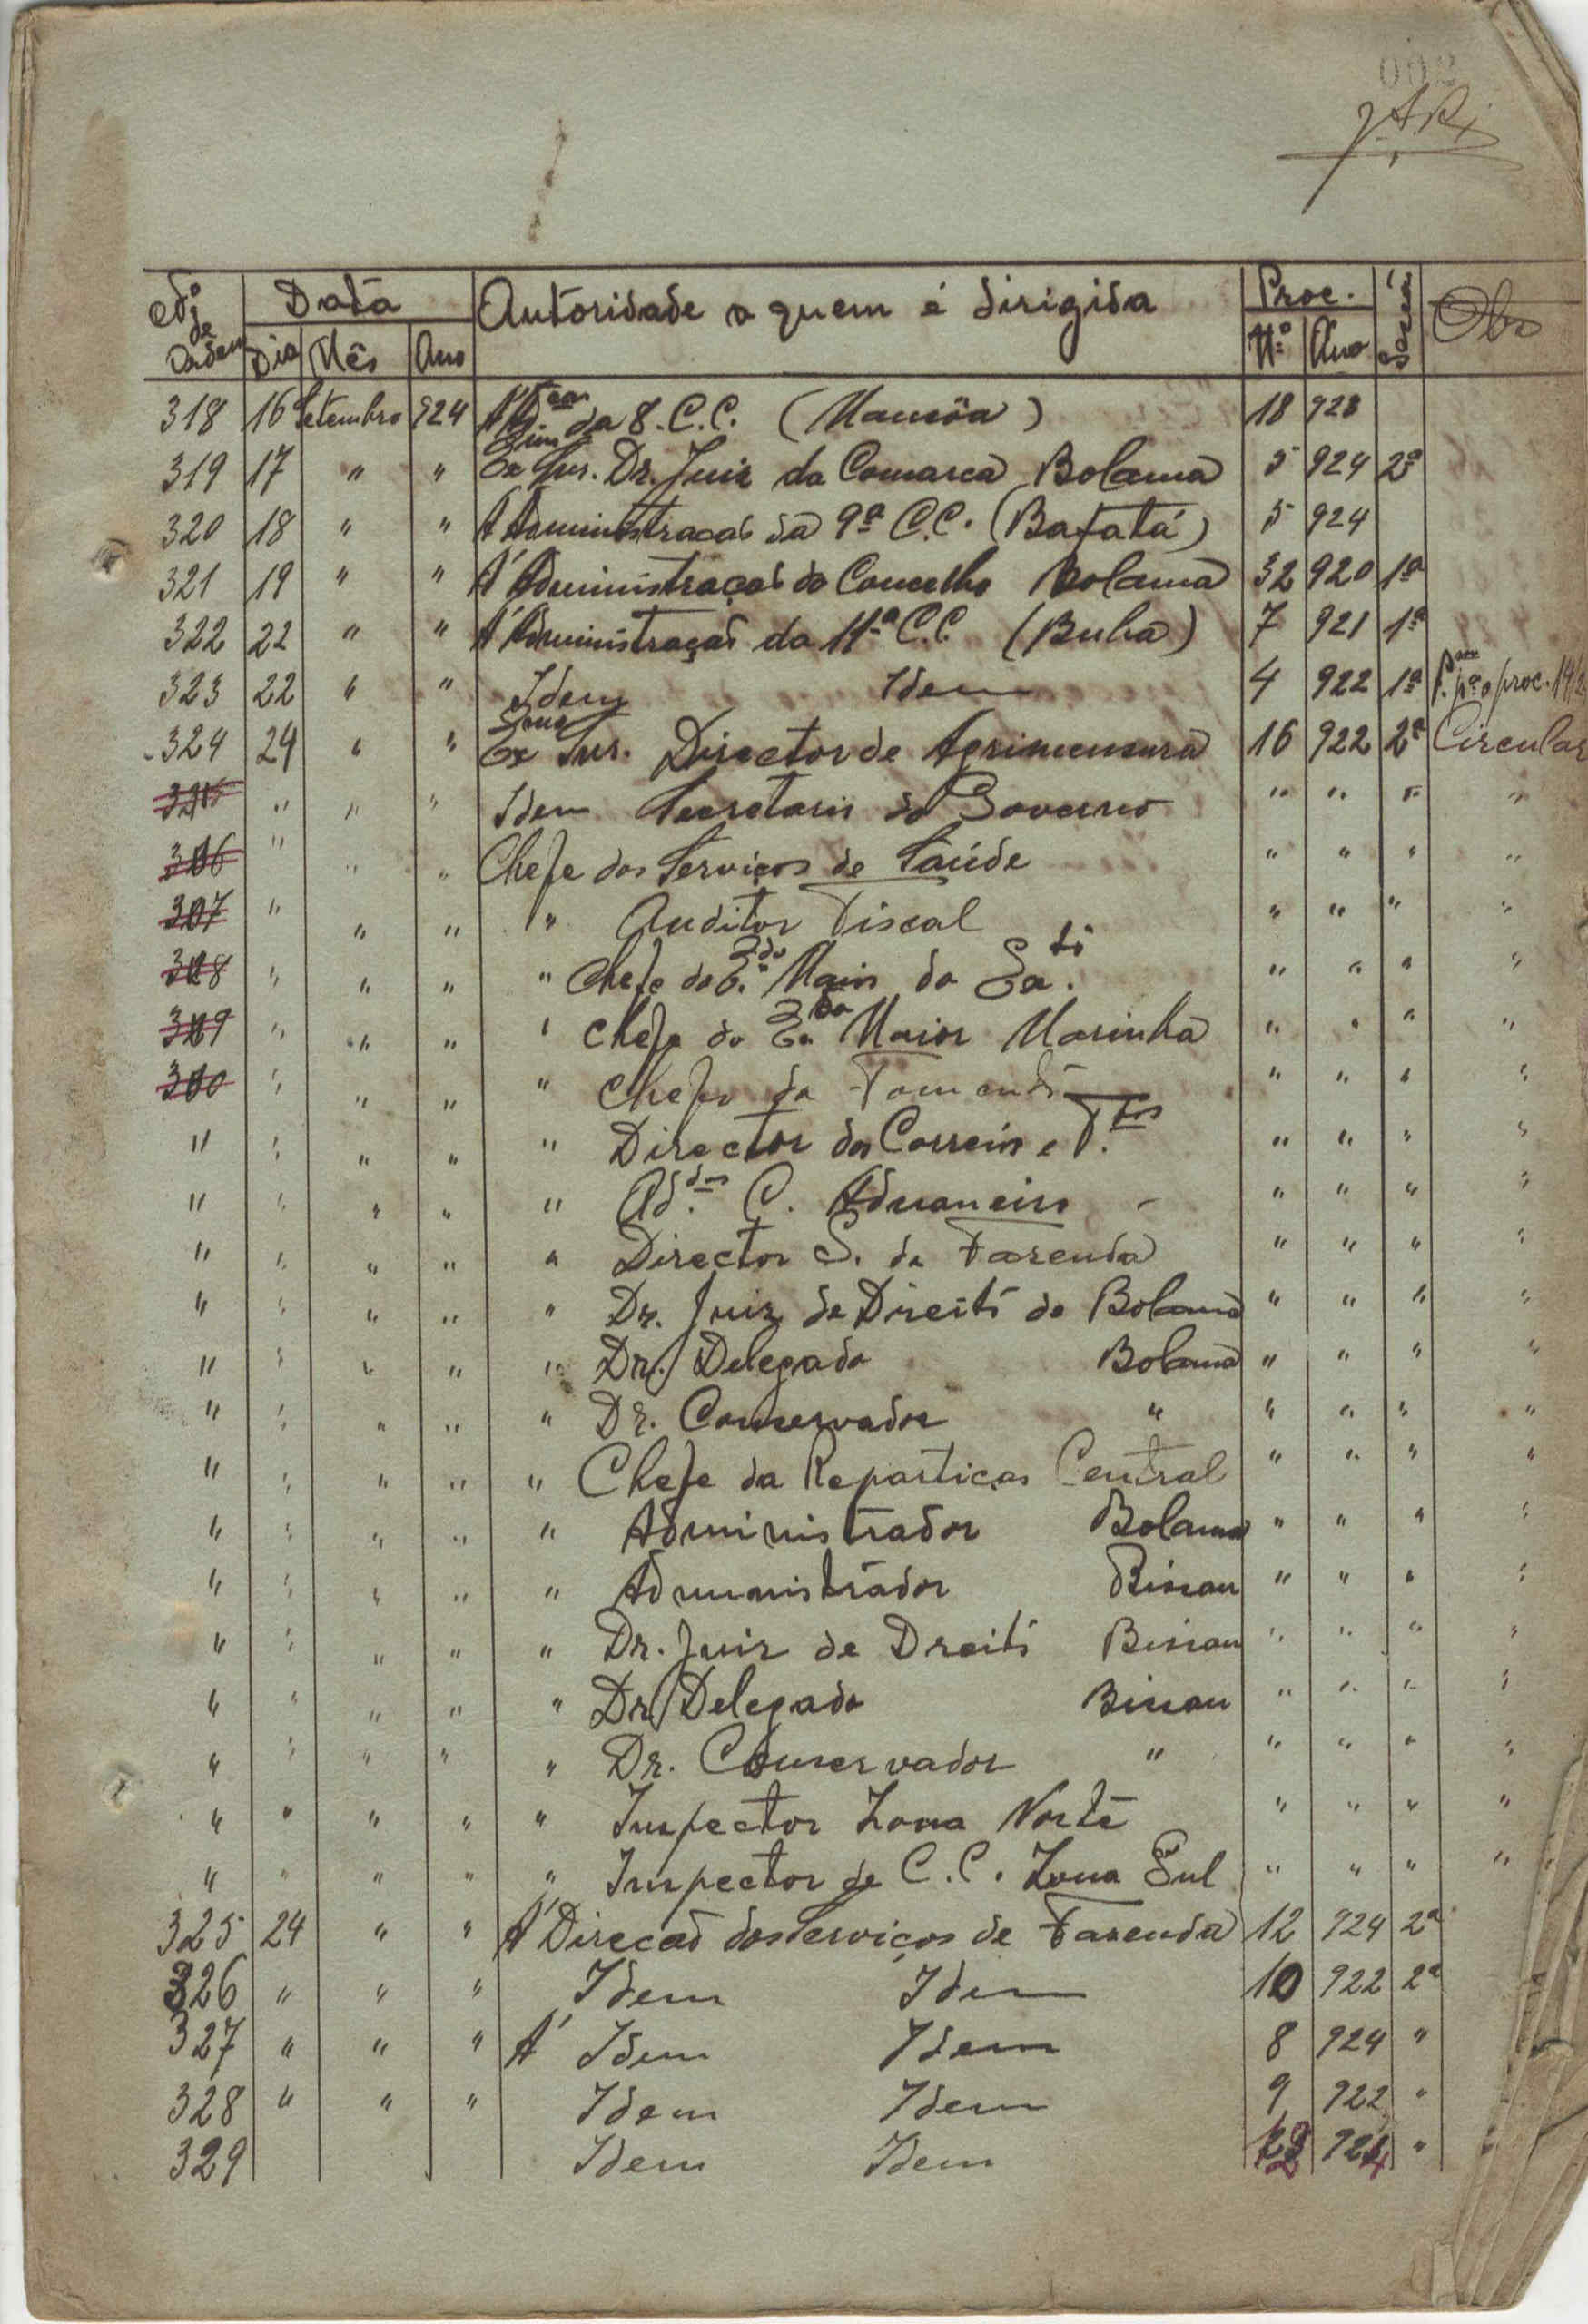 002
Nº de Ordem Data Autoridade a quem é dirigida Proc. Secção Obs
Dia Mês Ano Nº Ano
318 16 Setembro 924 Á Admção da 8. C.C. (Mansôa) 18 923
319 17 " " Exmo Snr. Dr. Juiz da Comarca Bolama 5 924 2ª
320 18 " " Á Administração da 9ª C.C. (Bafatá) 5 924
321 19 " " Á Administração do Concelho Bolama 32 920 1ª
322 22 " " Á Administração da 11ª C.C. (Buba) 7 921 1ª
323 22 " " Idem Idem 4 922 1ª P. pª o proc. 14/2
324 24 " " Exmo Snr. Director de Agrimensura 16 922 2ª Circular
325 " " " Idem Secretario do Governo " " " "
306 " " " Chefe dos Serviços de Saúde " " " "
307 " " " " Auditor Fiscal " " " "
308 " " " " Chefe do Edo Maior do Exto " " " "
309 " " " " Chefe do Edo Maior Marinha " " " "
300 " " " " Chefe do Fomento " " " "
" " " " " Director dos Correios e T.fos " " " "
" " " " " Ad.dor C. Aduaneiro " " " "
" " " " " Director S. da Fazenda " " " "
" " " " " Dr. Juiz de Direito de Bolama " " " "
" " " " " Dr. Delegado Bolama " " " "
" " " " " Dr. Conservador " " " " "
" " " " " Chefe da Repartição Central " " " "
" " " " " Administrador Bolama " " " "
" " " " " Administrador Bissau " " " "
" " " " " Dr. Juiz de Dreito Bissau " " " "
" " " " " Dr Delegado Bissau " " " "
" " " " " Dr. Conservador " " " " "
" " " " " Inspector Zona Norte " " " "
" " " " " Inspector de C.C. Zona Sul " " " "
325 24 " " Á Direcão dos Serviços de Fazenda 12 924 2ª
326 " " " Idem Idem 10 922 2ª
327 " " " Á Idem Idem 8 924 "
328 " " " Idem Idem 9 922 "
329 Idem Idem 12 924 "